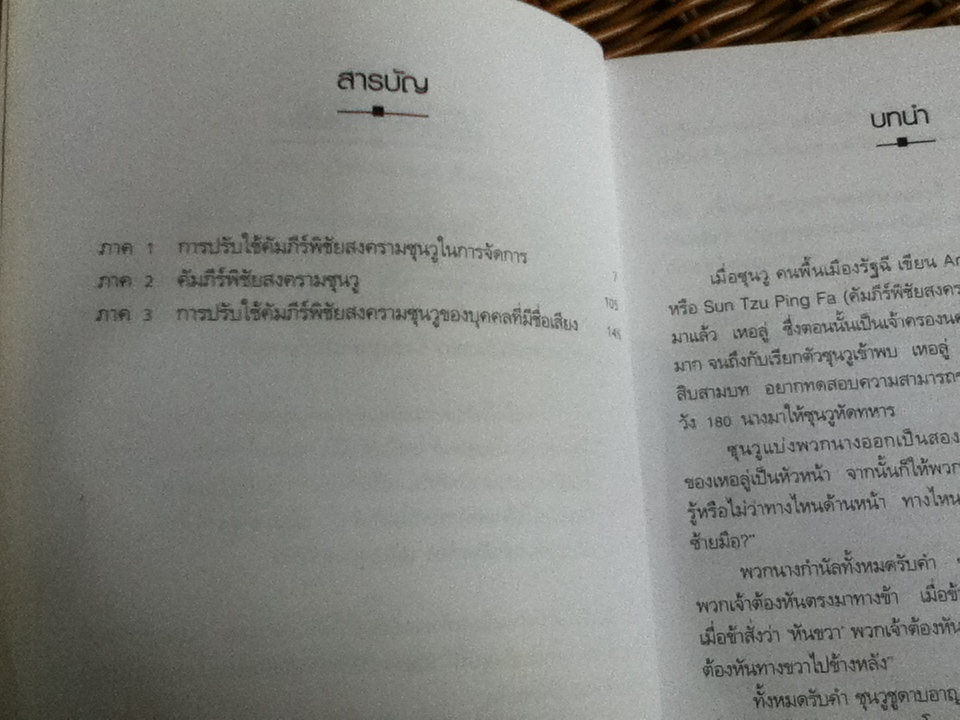 สารบัญ
ภาค 1 การปรับใช้คัมภีร์พิชัยสงครามซุนวูในการจัดการ 7
ภาค 2 คัมภีร์พิชัยสงครามซุนวู 105
ภาค 3 การปรับใช้คัมภีร์พิชัยสงครามซุนวูของบุคคลที่มีชื่อเสียง 145
บทนำ
เมื่อซุนวู คนพื้นเมืองรัฐฉี เขียน
หรือ Sun Tzu Ping Fa (คัมภีร์พิชัยสงคร
มาแล้ว เหอลู่ ซึ่งตอนนั้นเป็นเจ้าครองนค
มาก จนถึงกับเรียกตัวซุนวูเข้าพบ เหอลู่
สิบสามบท อยากทดสอบความสามารถ
วัง 180 นางมาให้ซุนวูหัดทหาร
ซุนวูแบ่งพวกนางออกเป็นสอง
ของเหอลู่เป็นหัวหน้า จากนั้นก็ให้พวก
รู้หรือไม่ว่าทางไหนด้านหน้า ทางไหน
ซ้ายมือ?"
พวกนางกำนัลทั้งหมดรับคำ
พวกเจ้าต้องหันตรงมาทางข้า เมื่อข้า
เมื่อข้าสั่งว่า 'หันขวา' พวกเจ้าต้องหัน
ต้องหันทางขวาไปข้างหลัง"
ทั้งหมดรับคำ ซุนวูชูดาบอาญ